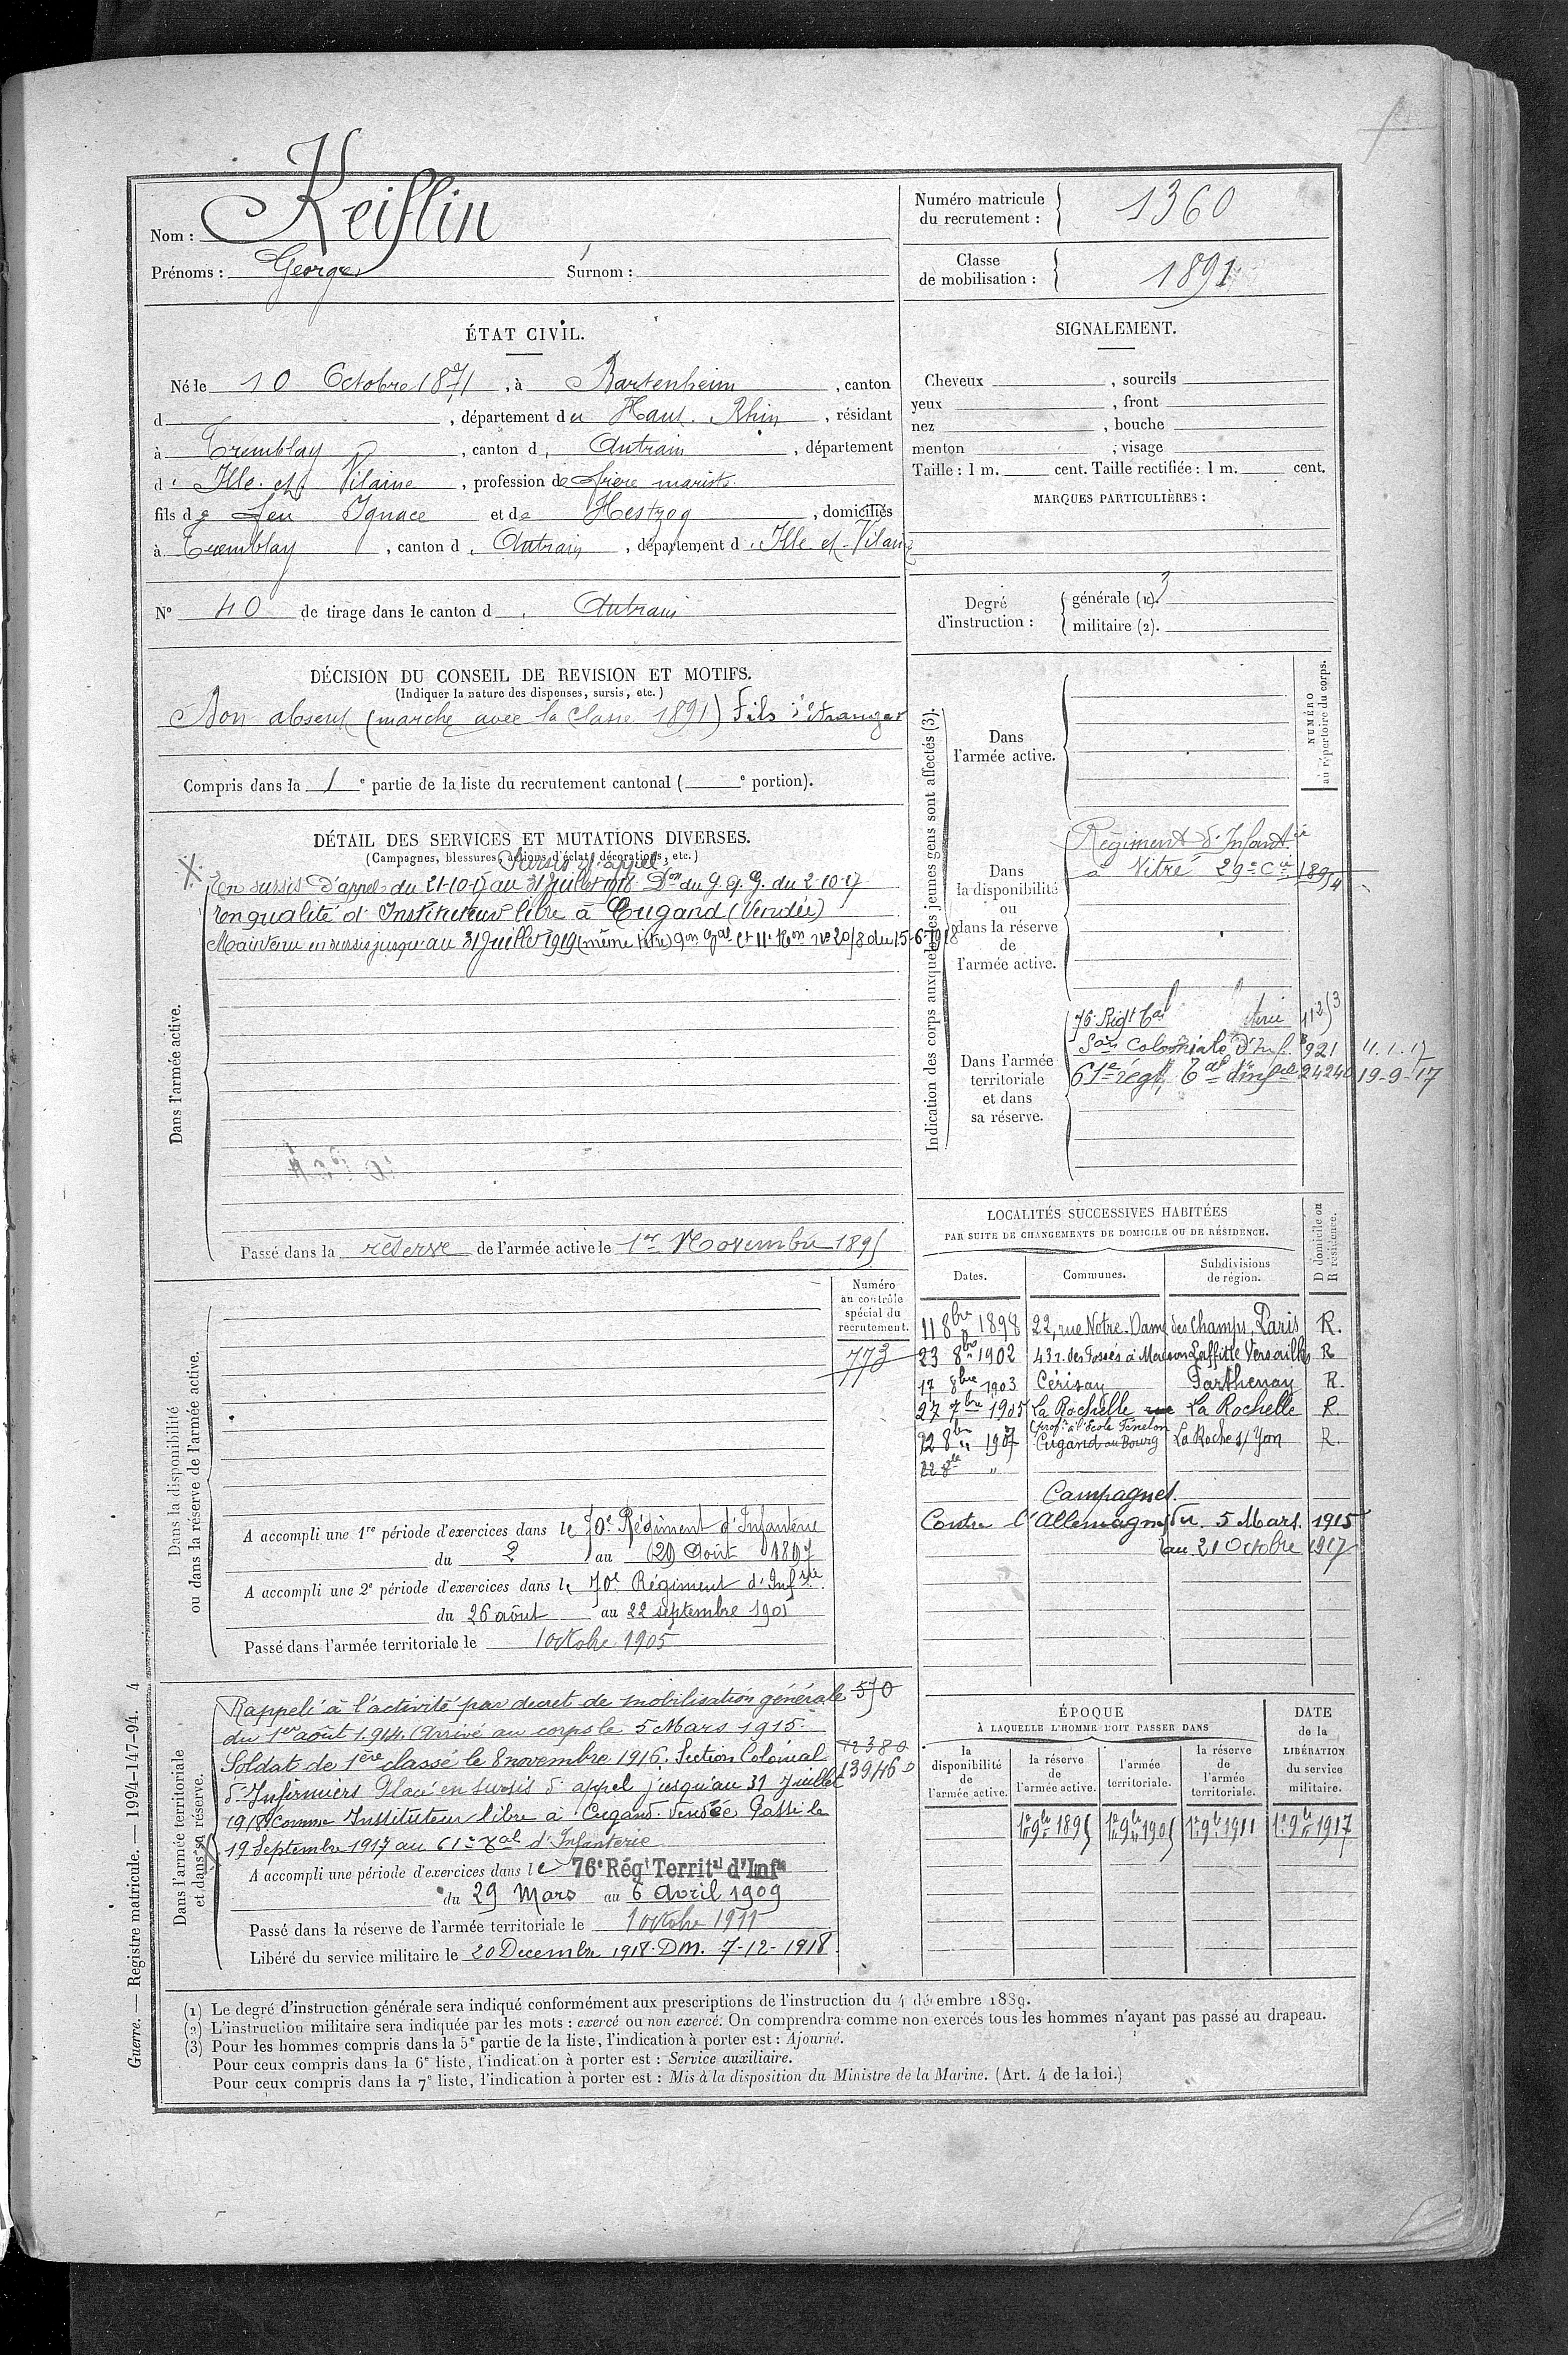 Nom : Keiflin
Prénoms : Georges Surnom :
Numéro matricule du recrutement : 1360
Classe de mobilisation : 1891
ÉTAT CIVIL.
Né le 10 Octobre 1871, à Bartenheim, canton
d , département du Haut-Rhin, résidant
à Tremblay, canton d'Antrain, département
d'Ille et Vilaine, profession de frère mariste
fils de feu Ignace et de Hestzog, domiciliés
à Tremblay, canton d'Antrain, département d'Ille et Vilaine
N° 40 de tirage dans le canton d'Antrain
SIGNALEMENT.
Cheveux , sourcils
yeux , front
nez , bouche
menton ; visage
Taille : 1 m. cent. Taille rectifiée : 1 m. cent.
MARQUES PARTICULIÈRES :
Degré d'instruction : générale (1). 3
militaire (2).
DÉCISION DU CONSEIL DE REVISION ET MOTIFS.
(Indiquer la nature des dispenses, sursis, etc.)
Bon absent (marche avec la classe 1891) Fils d'étranger
Compris dans la 1e partie de la liste du recrutement cantonal ( e portion).
DÉTAIL DES SERVICES ET MUTATIONS DIVERSES.
(Campagnes, blessures, actions d'éclat, décorations, etc.)
Sursis d'appel
En sursis d'appel du 21-10-17 au 31 Juillet 1918 Don du G.Q.G. du 2-10-17
en qualité d'Instituteur libre à Cugand (Vendée)
Maintenu en sursis jusqu'au 31 Juillet 1919 (même titre) du 15-6-1918
Dans l'armée active.
Passé dans la réserve de l'armée active le 1er Novembre 1895
Indication des corps auxquels les jeunes gens sont affectés (3).
NUMÉRO au répertoire du corps.
Dans l'armée active.
Dans la disponibilité ou dans la réserve de l'armée active.
Régiment d'Infantie
à Vitré 29e Cie 1894
Dans l'armée territoriale et dans sa réserve.
76 Rigt Tal
Son Coloniale d'Inf. 921 11.1.17
61e régt Tal d'infie 24240 19-9-17
LOCALITÉS SUCCESSIVES HABITÉES
PAR SUITE DE CHANGEMENTS DE DOMICILE OU DE RÉSIDENCE.
Dates. Communes. Subdivisions de région. D domicile ou R résidence.
11 8bre 1898 22, rue Notre-Dame des Champs, Paris R.
23 8bre 1902 43 r. des Fossés à Maison Laffitte Versailles R
17 8bre 1903 Cérisay Parthenay R.
27 7bre 1905 La Rochelle rue La Rochelle R.
(prof. à l'Ecole Fénelon
22 8bre 1907 Cugand au Bourg La Roche s/ Yon R.
22 8bre "
Campagnes.
Contre l'Allemagne Du 5 Mars 1915
au 21 Octobre 1917
Dans la disponibilité ou dans la réserve de l'armée active.
Numéro au contrôle spécial du recrutement.
773
A accompli une 1re période d'exercices dans le 70e Régiment d'Infanterie
du 2 au 29 Août 1897
A accompli une 2e période d'exercices dans le 70e Régiment d'Infrie
du 26 août au 22 septembre 1901
Passé dans l'armée territoriale le 1 octobre 1905
Dans l'armée territoriale et dans sa réserve.
Rappelé à l'activité par décret de mobilisation générale
du 1er août 1914. Arrivé au corps le 5 Mars 1915.
Soldat de 1ère classe le 8 novembre 1916. Section Colonial
d'Infirmiers Placé en sursis d'appel jusqu'au 31 Juillet
1918 comme Instituteur libre à Cugand Vendée Passé le
19 Septembre 1917 au 61e Tal d'Infanterie
570
12380
13946
A accompli une période d'exercices dans le 76e Régt Territal d'Infie
du 29 Mars au 6 Avril 1909
Passé dans la réserve de l'armée territoriale le 1 octobre 1911
Libéré du service militaire le 20 Decembre 1918. DM. 7-12-1918
ÉPOQUE À LAQUELLE L'HOMME DOIT PASSER DANS
la disponibilité de l'armée active. la réserve de l'armée active. l'armée territoriale. la réserve de l'armée territoriale.
DATE de la LIBÉRATION du service militaire.
1er 9bre 1895 1er 9bre 1905 1er 9bre 1911 1er 9bre 1917
(1) Le degré d'instruction générale sera indiqué conformément aux prescriptions de l'instruction du 4 décembre 1889.
(2) L'instruction militaire sera indiquée par les mots : exercé ou non exercé. On comprendra comme non exercés tous les hommes n'ayant pas passé au drapeau.
(3) Pour les hommes compris dans la 5e partie de la liste, l'indication à porter est : Ajourné.
Pour ceux compris dans la 6e liste, l'indication à porter est : Service auxiliaire.
Pour ceux compris dans la 7e liste, l'indication à porter est : Mis à la disposition du Ministre de la Marine. (Art. 4 de la loi.)
Guerre. — Registre matricule. — 1994-147-94. 4